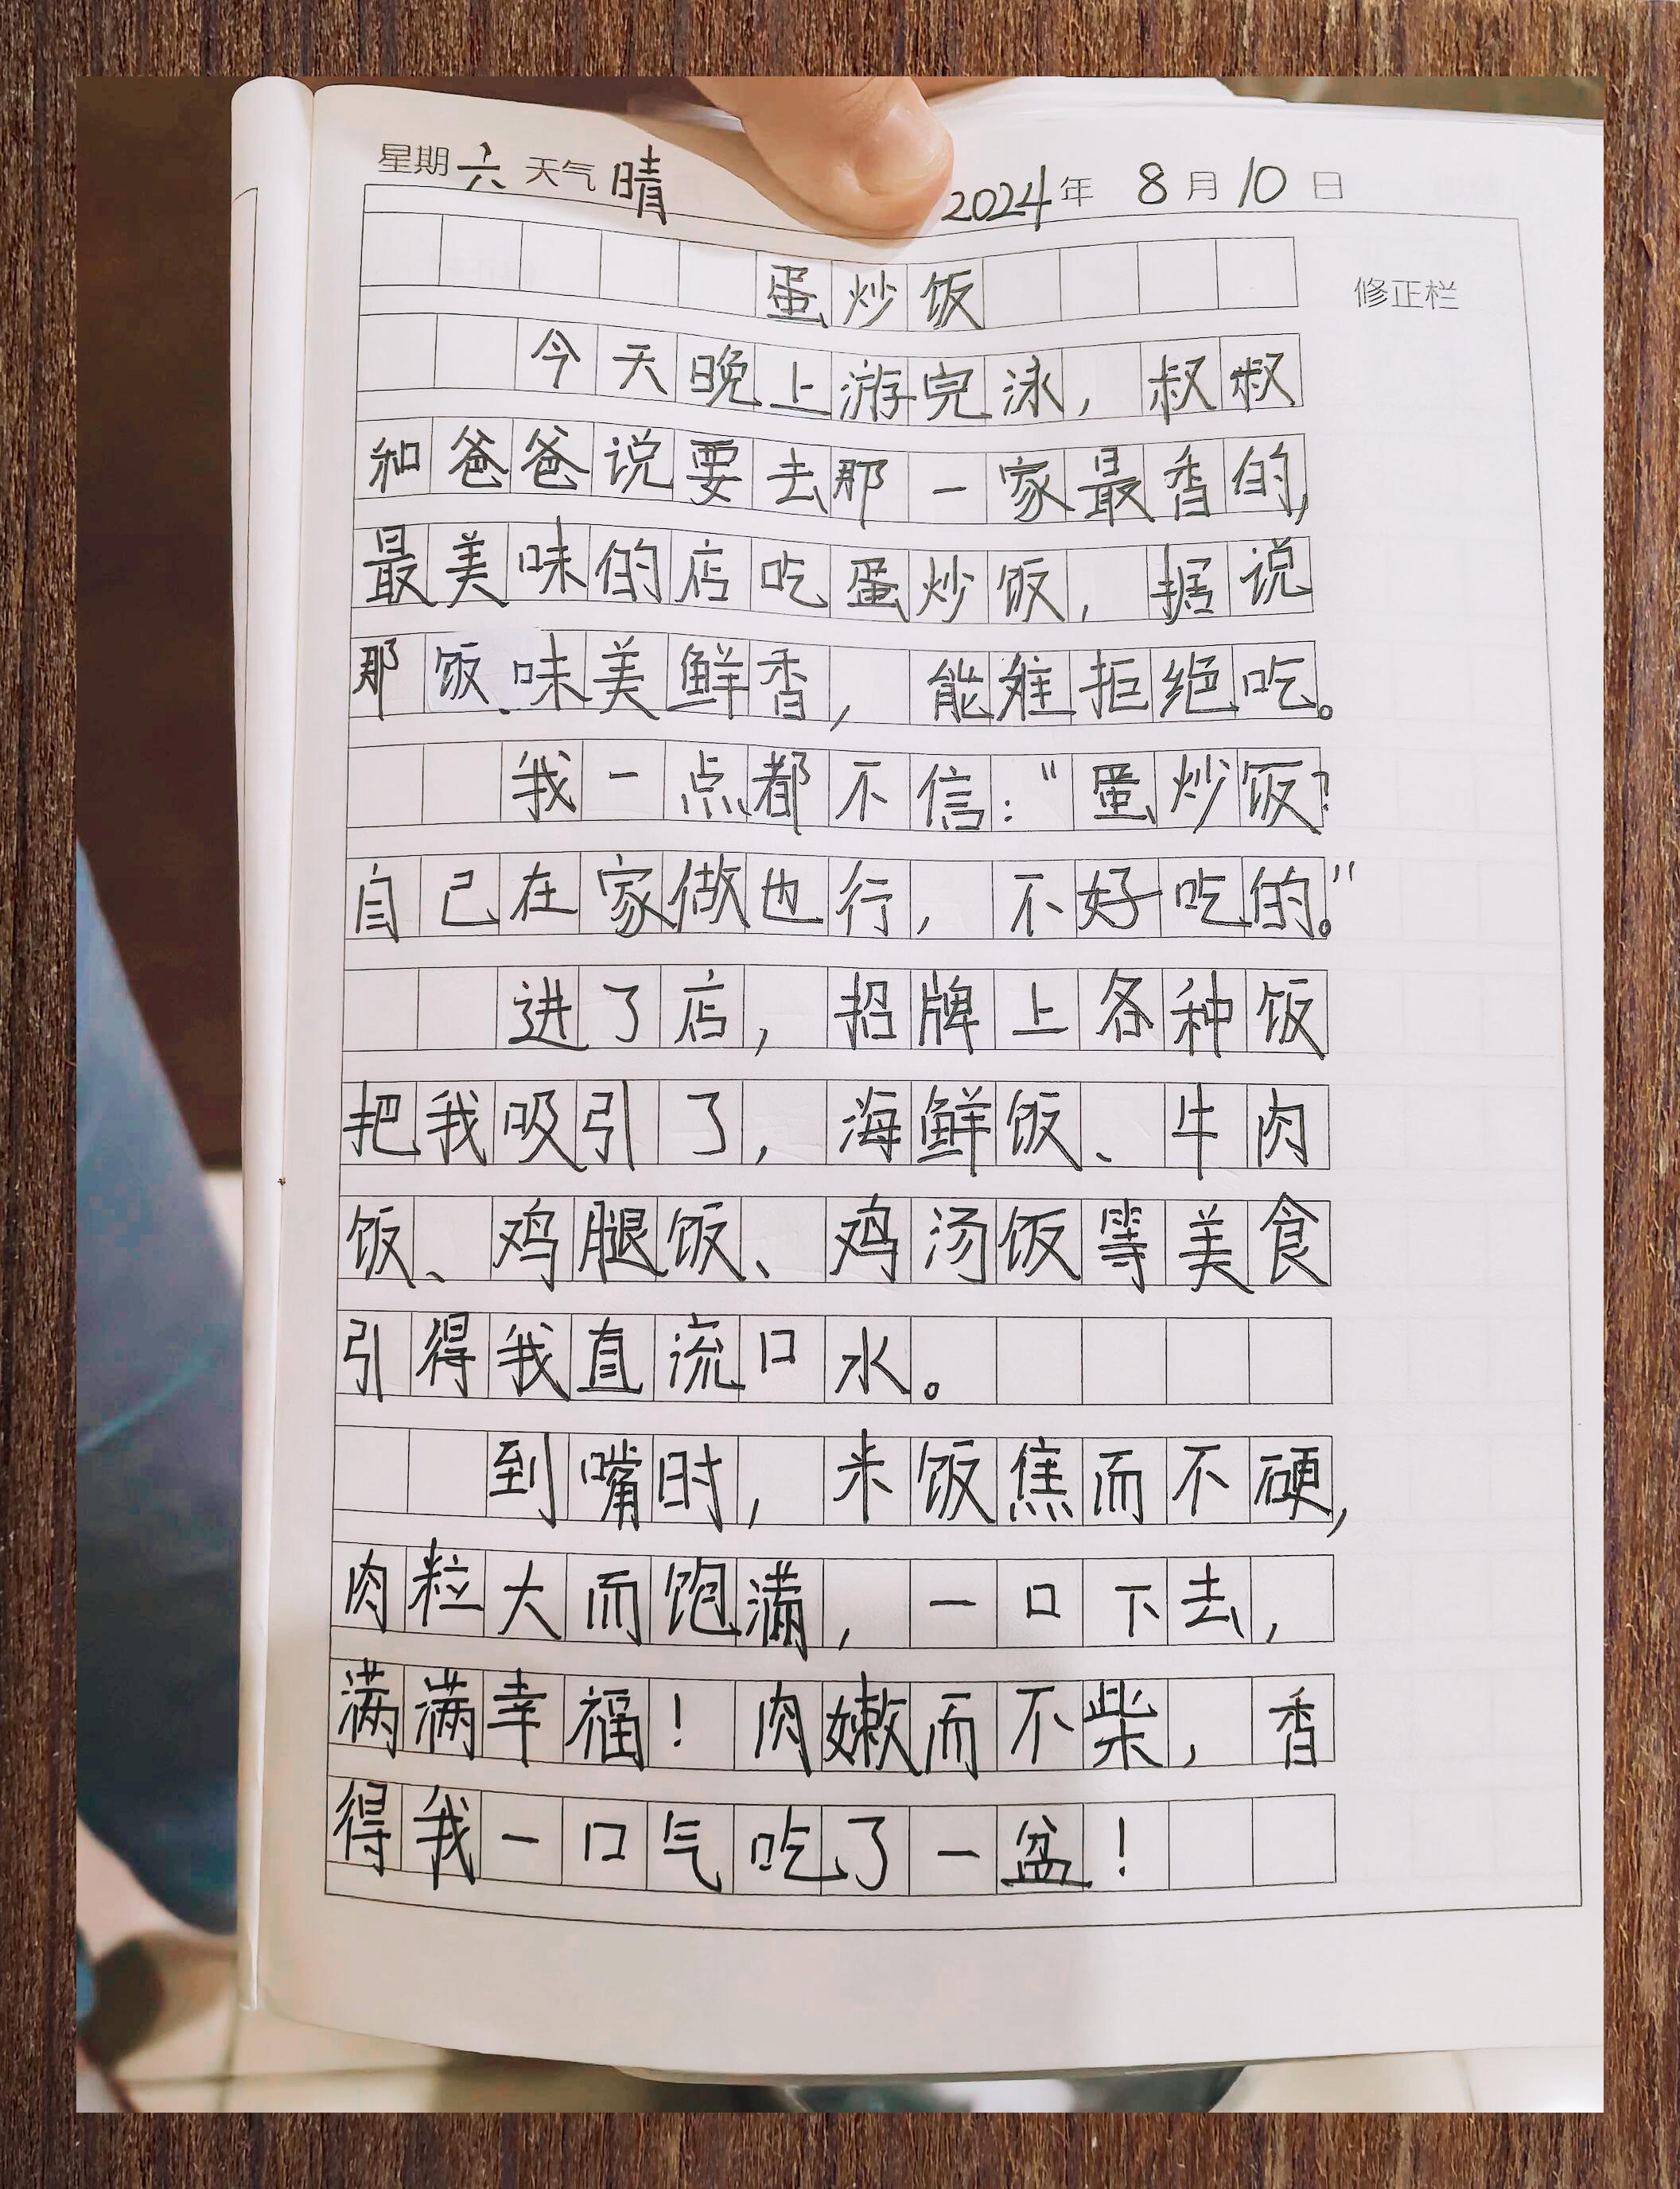 星期六 天气晴 2024年 8月10日
蛋炒饭
修正栏
今天晚上游完泳，叔叔
和爸爸说要去那一家最香的，
最美味的店吃蛋炒饭，据说
那饭、味美鲜香，能难拒绝吃。
我一点都不信：“蛋炒饭？
自己在家做也行，不好吃的。”
进了店，招牌上各种饭
把我吸引了，海鲜饭、牛肉
饭、鸡腿饭、鸡汤饭等美食
引得我直流口水。
到嘴时，米饭焦而不硬，
肉粒大而饱满，一口下去，
满满幸福！肉嫩而不柴，香
得我一口气吃了一盆！